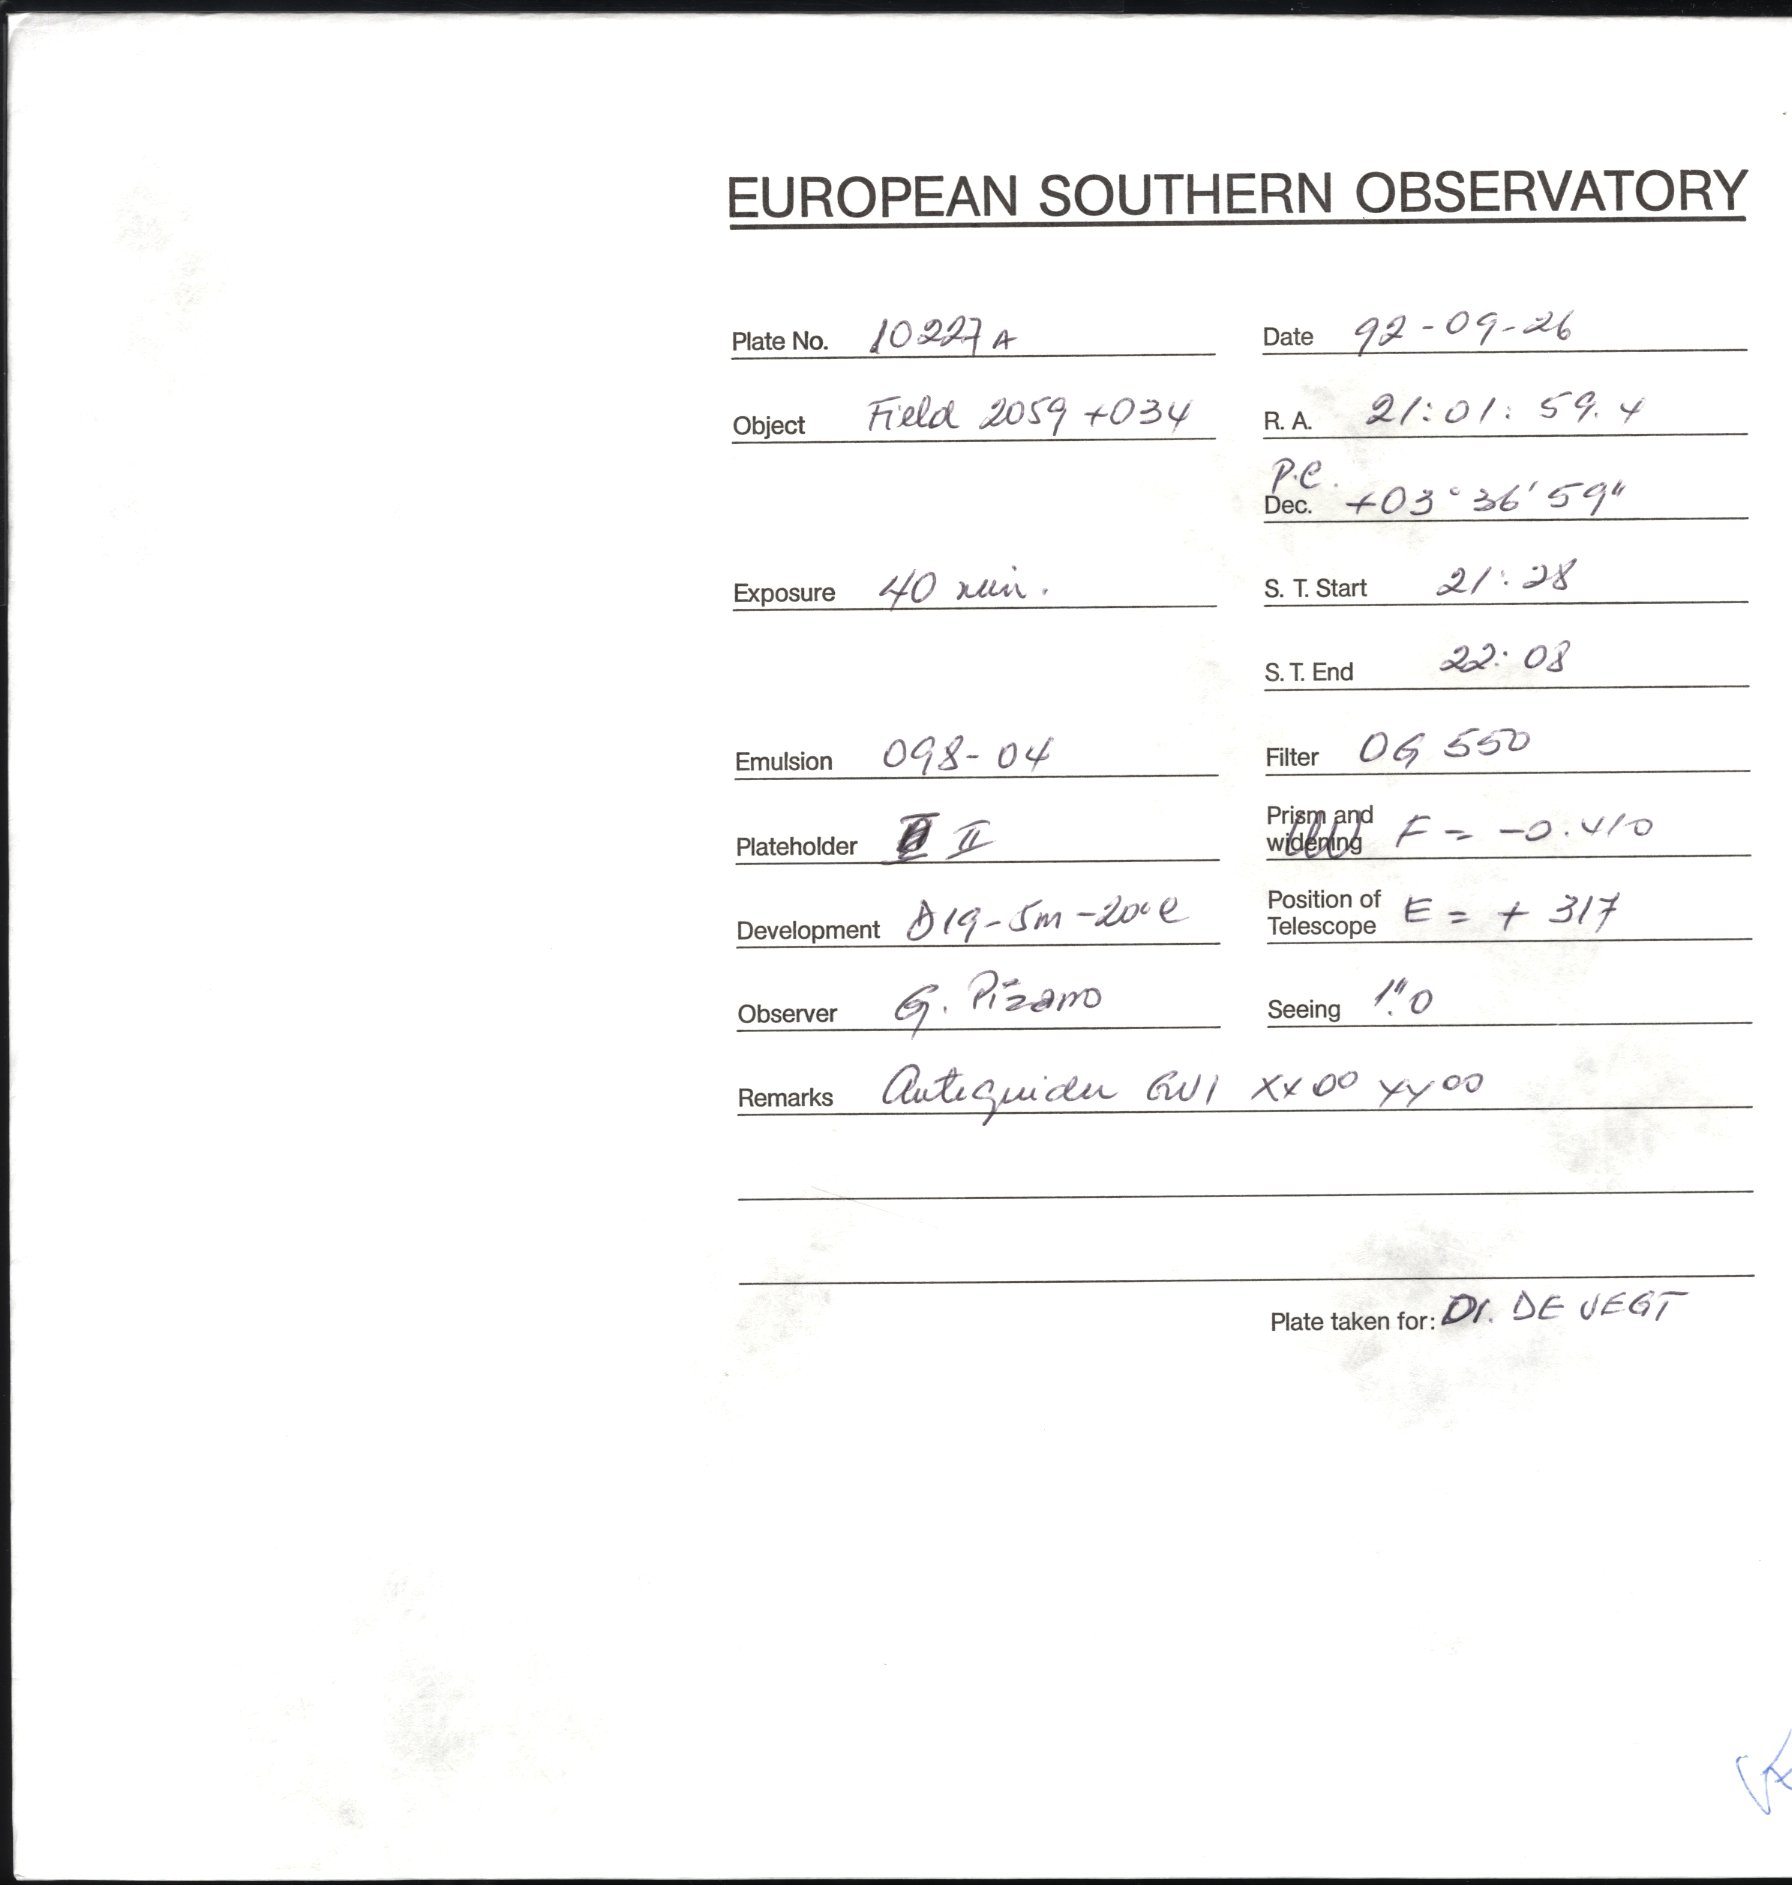 EUROPEAN SOUTHERN OBSERVATORY
Plate No. 10227 A Date 92-09-26
Object Field 2059 +034 R. A. 21:01: 59.4
P.C.
Dec. +03° 36' 59"
Exposure 40 min. S. T. Start 21:28
S. T. End 22:08
Emulsion 098-04 Filter OG 550
Plateholder II Prism and widening F = -0.410
Development D19-5m-20°C Position of Telescope E = + 317
Observer G. Pizarro Seeing 1".0
Remarks Autoguider GW1 XX00 YY00
Plate taken for: Dr. DE VEGT